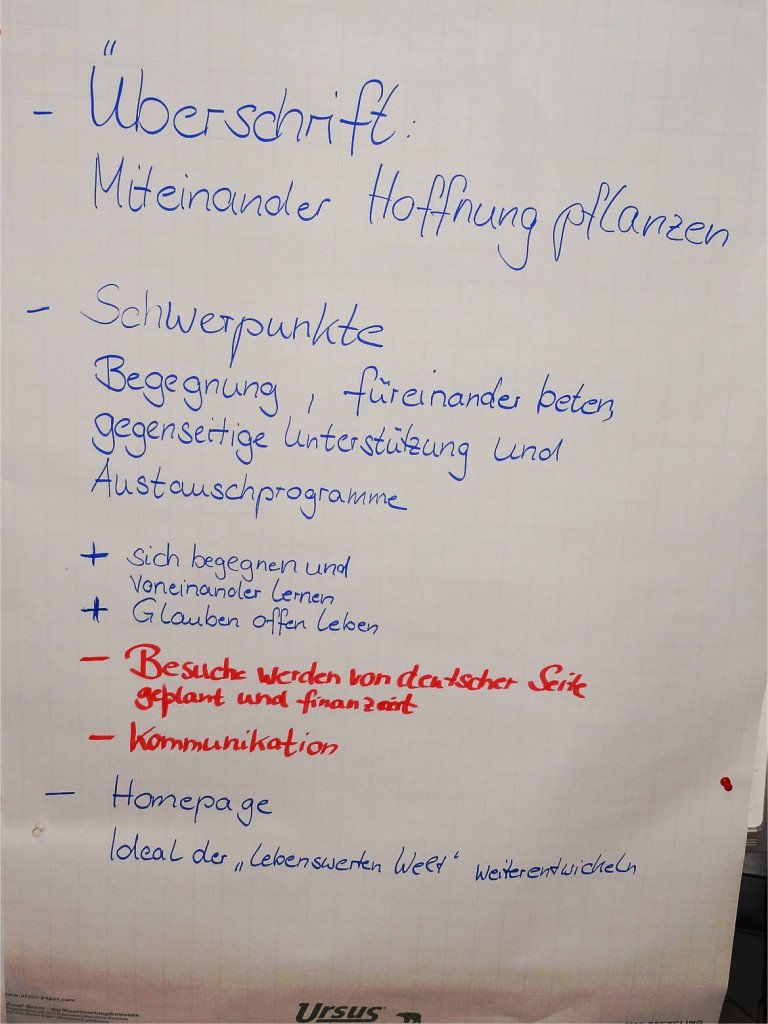 - Überschrift:
Miteinander Hoffnung pflanzen
- Schwerpunkte
Begegnung, füreinander beten,
gegenseitige Unterstützung und
Austauschprogramme
+ sich begegnen und
voneinander lernen
+ Glauben offen leben
- Besuche werden von deutscher Seite
geplant und finanziert
- Kommunikation
- Homepage
Ideal der „lebenswerten Welt“ weiterentwickeln
www.ursus-paper.com
Ursus
RECYCLING